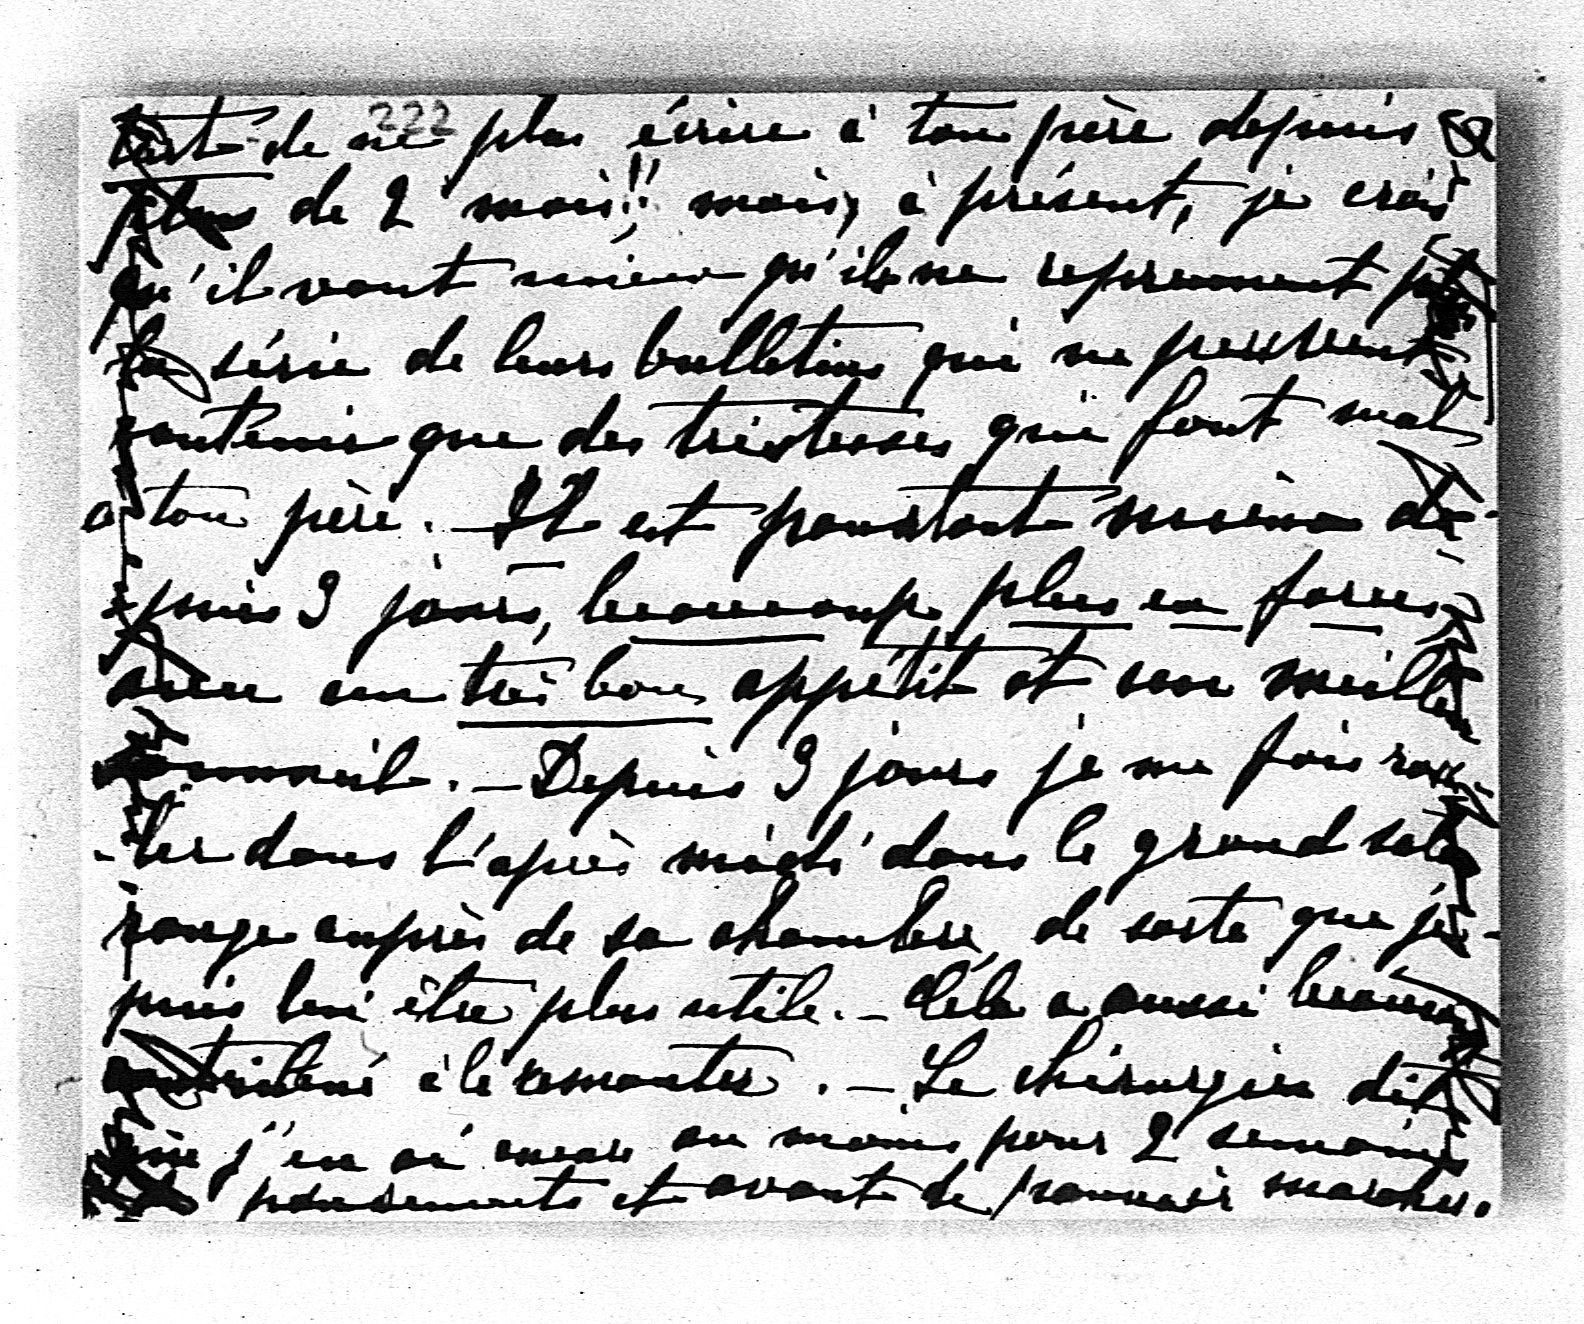 222
tort de ne plus écrire à ton père depuis
plus de 2 mois!! mais, à présent, je crois
qu'il vaut mieux qu'ils ne reprennent pas
la série de leurs bulletins qui ne peuvent
contenir que des tristesses qui font mal
à ton père. — Il est pourtant mieux de-
puis 3 jours, beaucoup plus en forces,
avec un très bon appétit et un meilleur
sommeil. — Depuis 3 jours je me fais rou-
-ler dans l'après midi dans le grand salon
rouge auprès de sa chambre, de sorte que je
puis lui être plus utile. — Cela a aussi beaucoup
contribué à le remonter. — Le chirurgien dit
que j'en ai encore au moins pour 2 semaines
pansements et avant de pouvoir marcher.